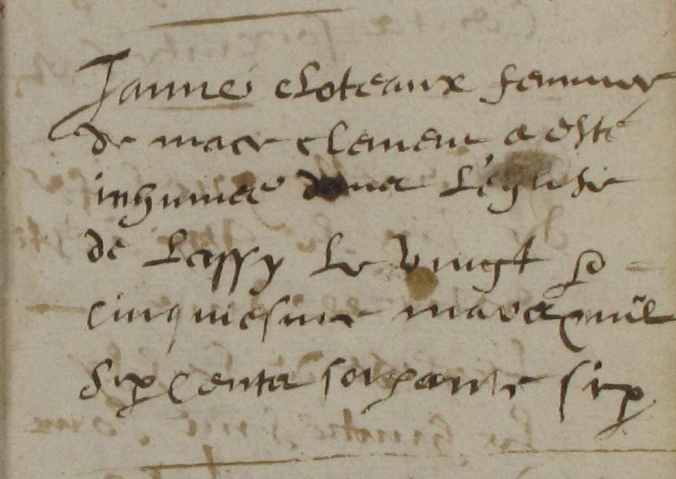 Janne cloteaux femme
de marc clement a esté
inhumee dans L'église
de Lassy le vingt &
cinquiesme mars mil
six cents soixante six